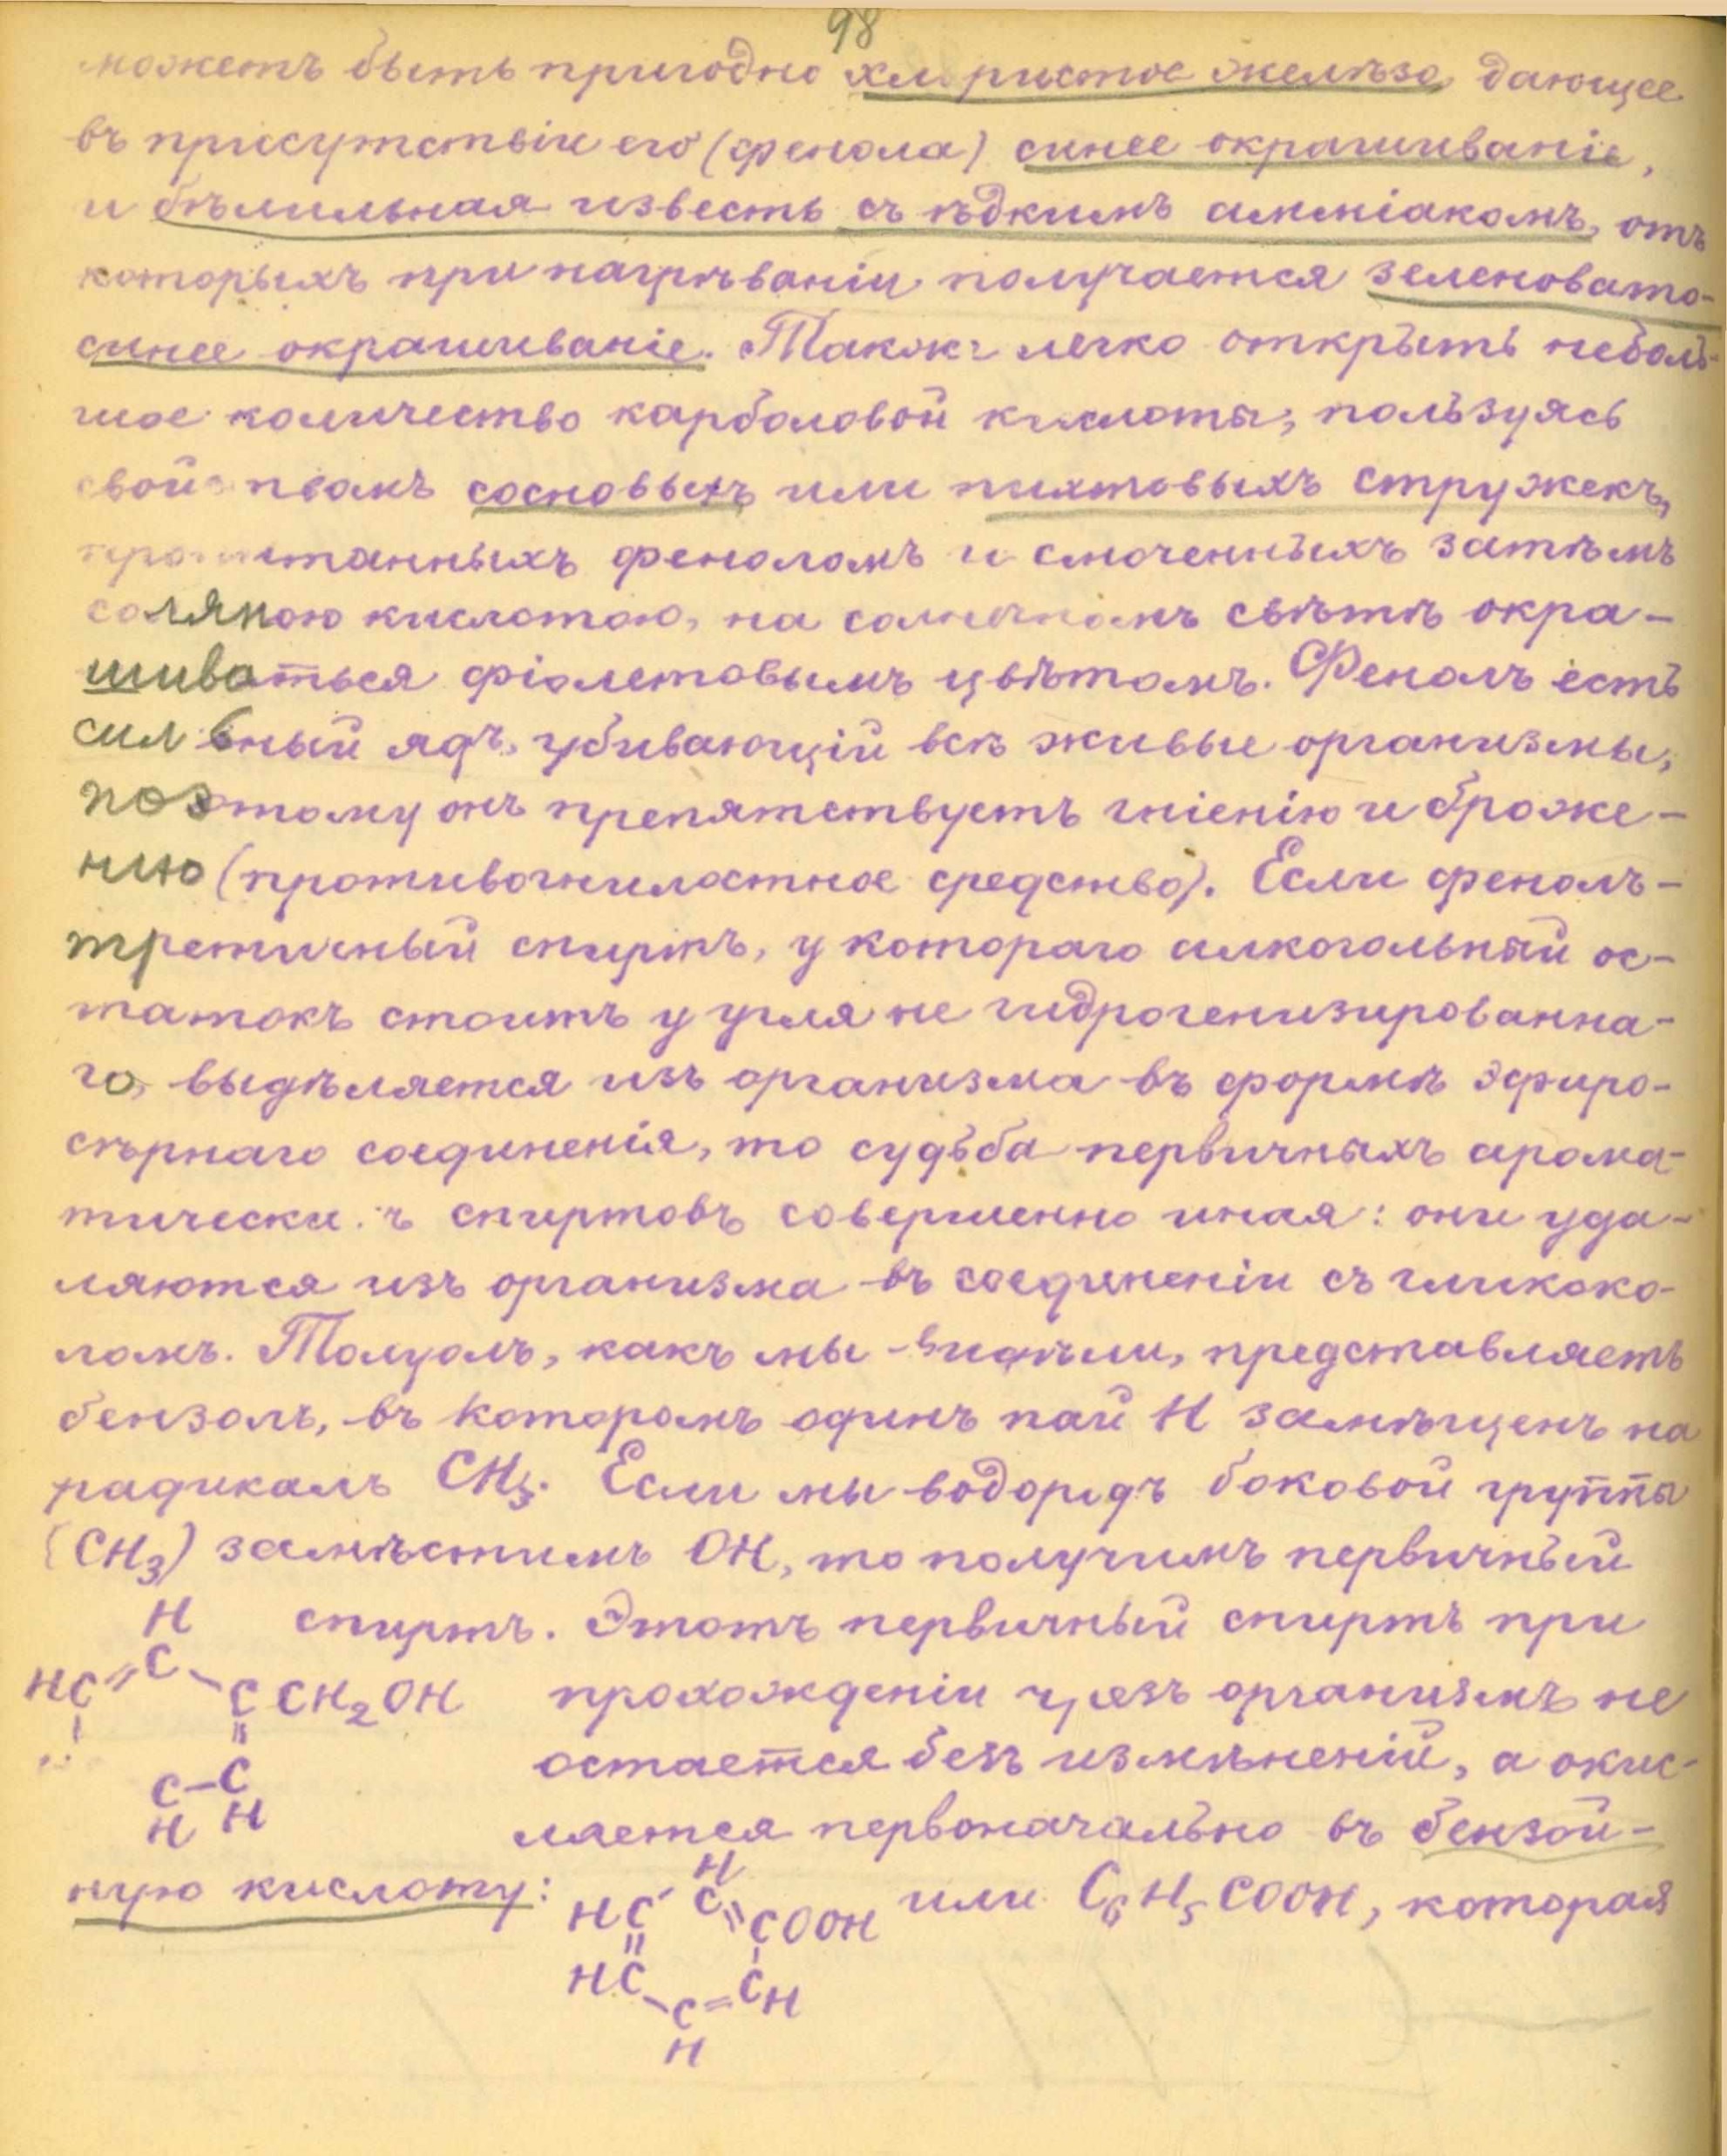 98
можетъ быть пригодно хлористое желѣзо, дающее
въ присутствіи его (фенола) синее окрашиваніе,
и бѣлильная известь съ ѣдкимъ амміакомъ, отъ
которыхъ при нагрѣваніи получается зеленовато-
синее окрашиваніе. Также легко открыть неболь-
шое количество карболовой кислоты, пользуясь
свойствомъ сосновыхъ или пихтовыхъ стружекъ,
пропитанныхъ феноломъ и смоченныхъ затѣмъ
соляною кислотою, на солнечномъ свѣтѣ окра-
шиваться фіолетовымъ цвѣтомъ. Фенолъ есть
сильный ядъ, убивающій всѣ живые организмы,
поэтому онъ препятствуетъ гніенію и броже-
нию (противогнилостное средство). Если фенолъ-
третичный спиртъ, у котораго алкогольный ос-
татокъ стоитъ у угля не гидрогенизированна-
го, выдѣляется изъ организма въ формѣ эфиро-
сѣрнаго соединенія, то судьба первичныхъ арома-
тически. ъ спиртовъ совершенно иная: они уда-
ляются изъ организма въ соединеніи съ гликоко-
ломъ. Толуолъ, какъ мы видѣли, представляетъ
бензолъ, въ которомъ одинъ пай H замѣщенъ на
радикалъ CH₃. Если мы водородъ боковой группы
(CH₃) замѣстимъ OH, то получимъ первичный
H спиртъ. Этотъ первичный спиртъ при
HC C
C CH₂OH прохожденіи чрезъ организмъ не
остается безъ измѣненій, а окис-
C–C
H H
ляется первоначально въ бензой-
ную кислоту: или C₆H₅COOH, которая
H
HC C COOH
HC C=CH
H